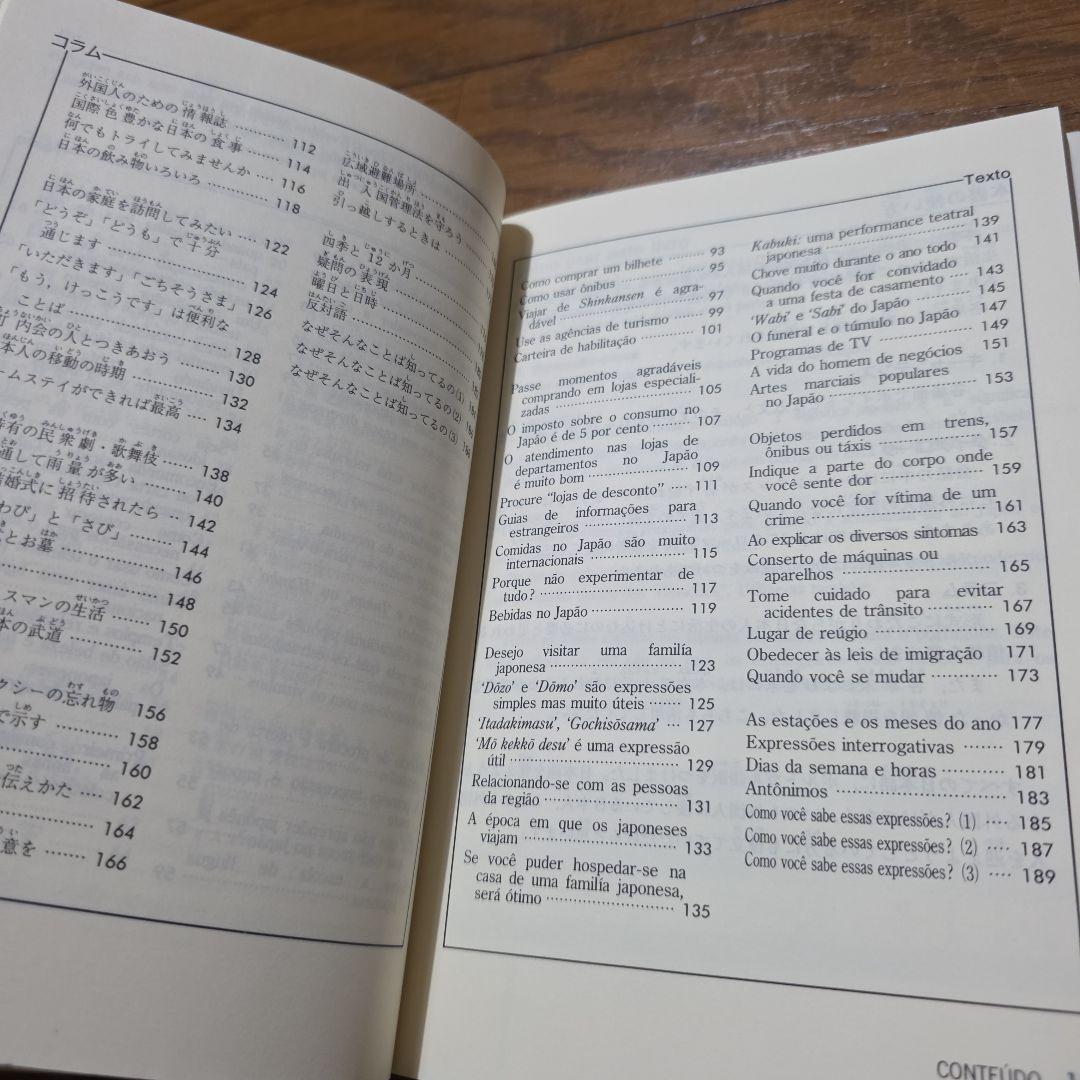 コラム
外国人のための情報誌 ………… 112
国際色豊かな日本の食事 ……… 114
何でもトライしてみませんか … 116
日本の飲み物いろいろ ………… 118
日本の家庭を訪問してみたい … 122
「どうぞ」「どうも」で十分
通じます ………… 124
「いただきます」「ごちそうさま」 126
「もう，けっこうです」は便利な
ことば ………… 128
内会の人とつきあおう ……… 130
本人の移動の時期 ………… 132
ームステイができれば最高 … 134
有の民衆劇・歌舞伎 …… 138
通して雨量が多い ……… 140
結婚式に招待されたら … 142
わび」と「さび」 ……… 144
とお墓 ………… 146
………… 148
スマンの生活 …… 150
本の武道 ………… 152
クシーの忘れ物 156
で示す ……… 158
………… 160
伝えかた …… 162
………… 164
意を ……… 166
広域避難場所
出入国管理法を守ろう
引っ越しするときは
四季と12か月
疑問の表現
曜日と日時
反対語
なぜそんなことば知ってるの(1)
なぜそんなことば知ってるの(2)
なぜそんなことば知ってるの(3)
Texto
Como comprar um bilhete ……… 93
Como usar ônibus ………… 95
Viajar de Shinkansen é agra-
dável ………… 97
Use as agências de turismo … 99
Carteira de habilitação ……… 101
Passe momentos agradáveis
comprando em lojas especiali-
zadas ………… 105
O imposto sobre o consumo no
Japão é de 5 por cento ……… 107
O atendimento nas lojas de
departamentos no Japão
é muito bom ………… 109
Procure “lojas de desconto” …· 111
Guias de informações para
estrangeiros ………… 113
Comidas no Japão são muito
internacionais ………… 115
Porque não experimentar de
tudo? ………… 117
Bebidas no Japão ………… 119
Desejo visitar uma família
japonesa ………… 123
‘Dōzo’ e ‘Dōmo’ são expressões
simples mas muito úteis …… 125
‘Itadakimasu’, ‘Gochisōsama’ … 127
‘Mō kekkō desu’ é uma expressão
útil ………… 129
Relacionando-se com as pessoas
da região ………… 131
A época em que os japoneses
viajam ………… 133
Se você puder hospedar-se na
casa de uma família japonesa,
será ótimo ………… 135
Kabuki: uma performance teatral
japonesa ………… 139
Chove muito durante o ano todo 141
Quando você for convidado
a uma festa de casamento …· 143
‘Wabi’ e ‘Sabi’ do Japão …… 145
O funeral e o túmulo no Japão 147
Programas de TV ………… 149
A vida do homem de negócios 151
Artes marciais populares
no Japão ………… 153
Objetos perdidos em trens,
ônibus ou táxis ………… 157
Indique a parte do corpo onde
você sente dor ………… 159
Quando você for vítima de um
crime ………… 161
Ao explicar os diversos sintomas 163
Conserto de máquinas ou
aparelhos ………… 165
Tome cuidado para evitar
acidentes de trânsito ……… 167
Lugar de reúgio ………… 169
Obedecer às leis de imigração 171
Quando você se mudar ……… 173
As estações e os meses do ano 177
Expressões interrogativas …… 179
Dias da semana e horas ……… 181
Antônimos ………… 183
Como você sabe essas expressões? (1) …· 185
Como você sabe essas expressões? (2) …· 187
Como você sabe essas expressões? (3) …· 189
CONTEÚDO